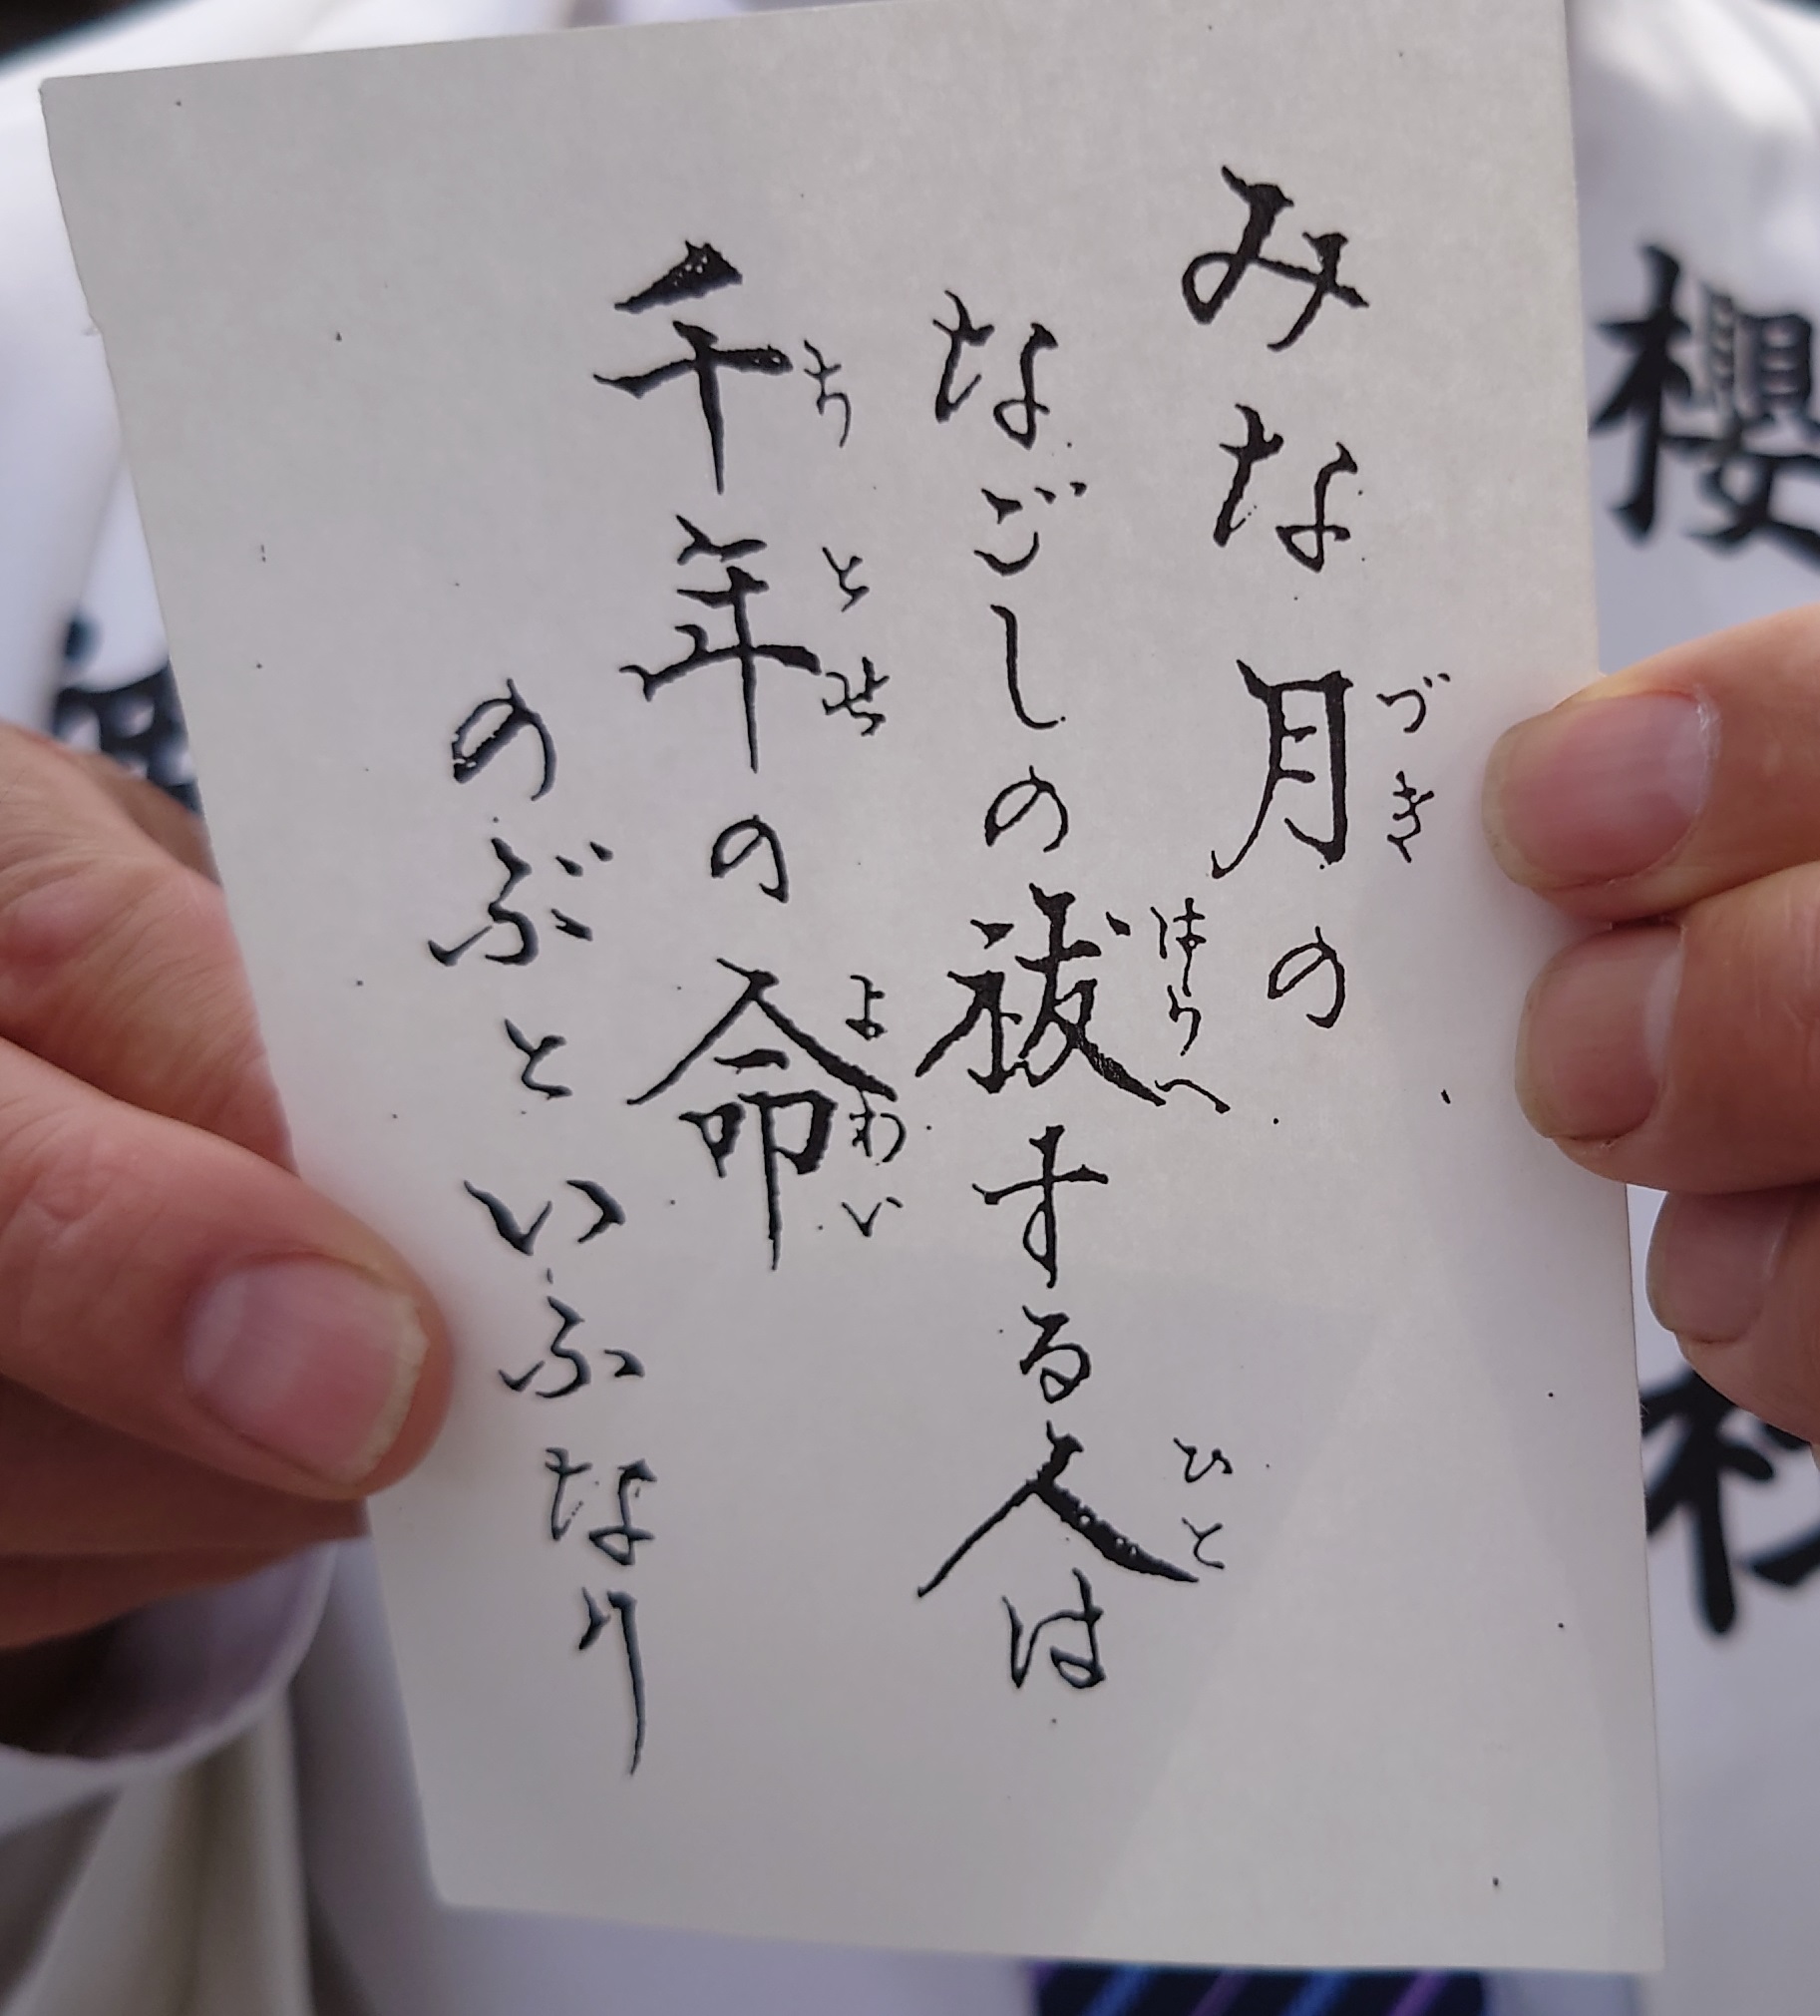 みな月の
づき
なごしの祓する人は
はらへ
ひと
千年の命
ちとせ
よわい
のぶといふなり
櫻